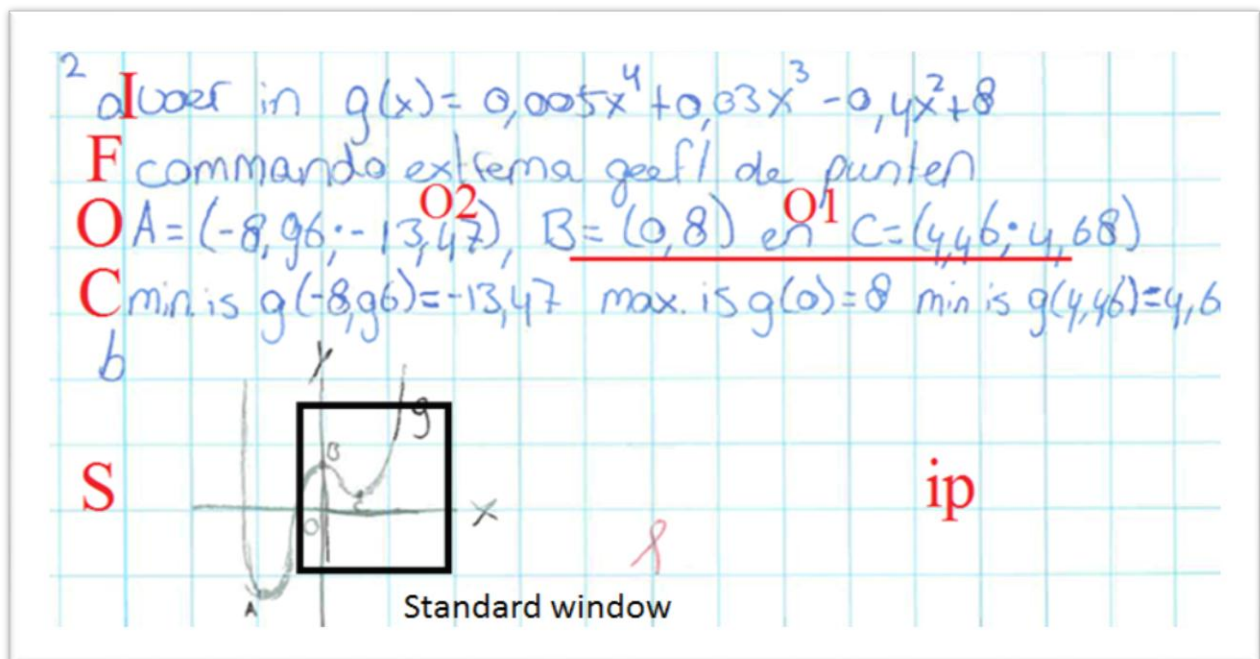 2
a I voer in g(x) = 0,005x⁴ + 0,03x³ - 0,4x² + 8
F commando extrema geeft de punten
O2 O1
O A = (-8,96; -13,47), B = (0,8) en C = (4,46; 4,68)
C min. is g(-8,96) = -13,47 max. is g(0) = 8 min is g(4,46) = 4,6
b
y
g
B
S C ip
O x
A
Standard window